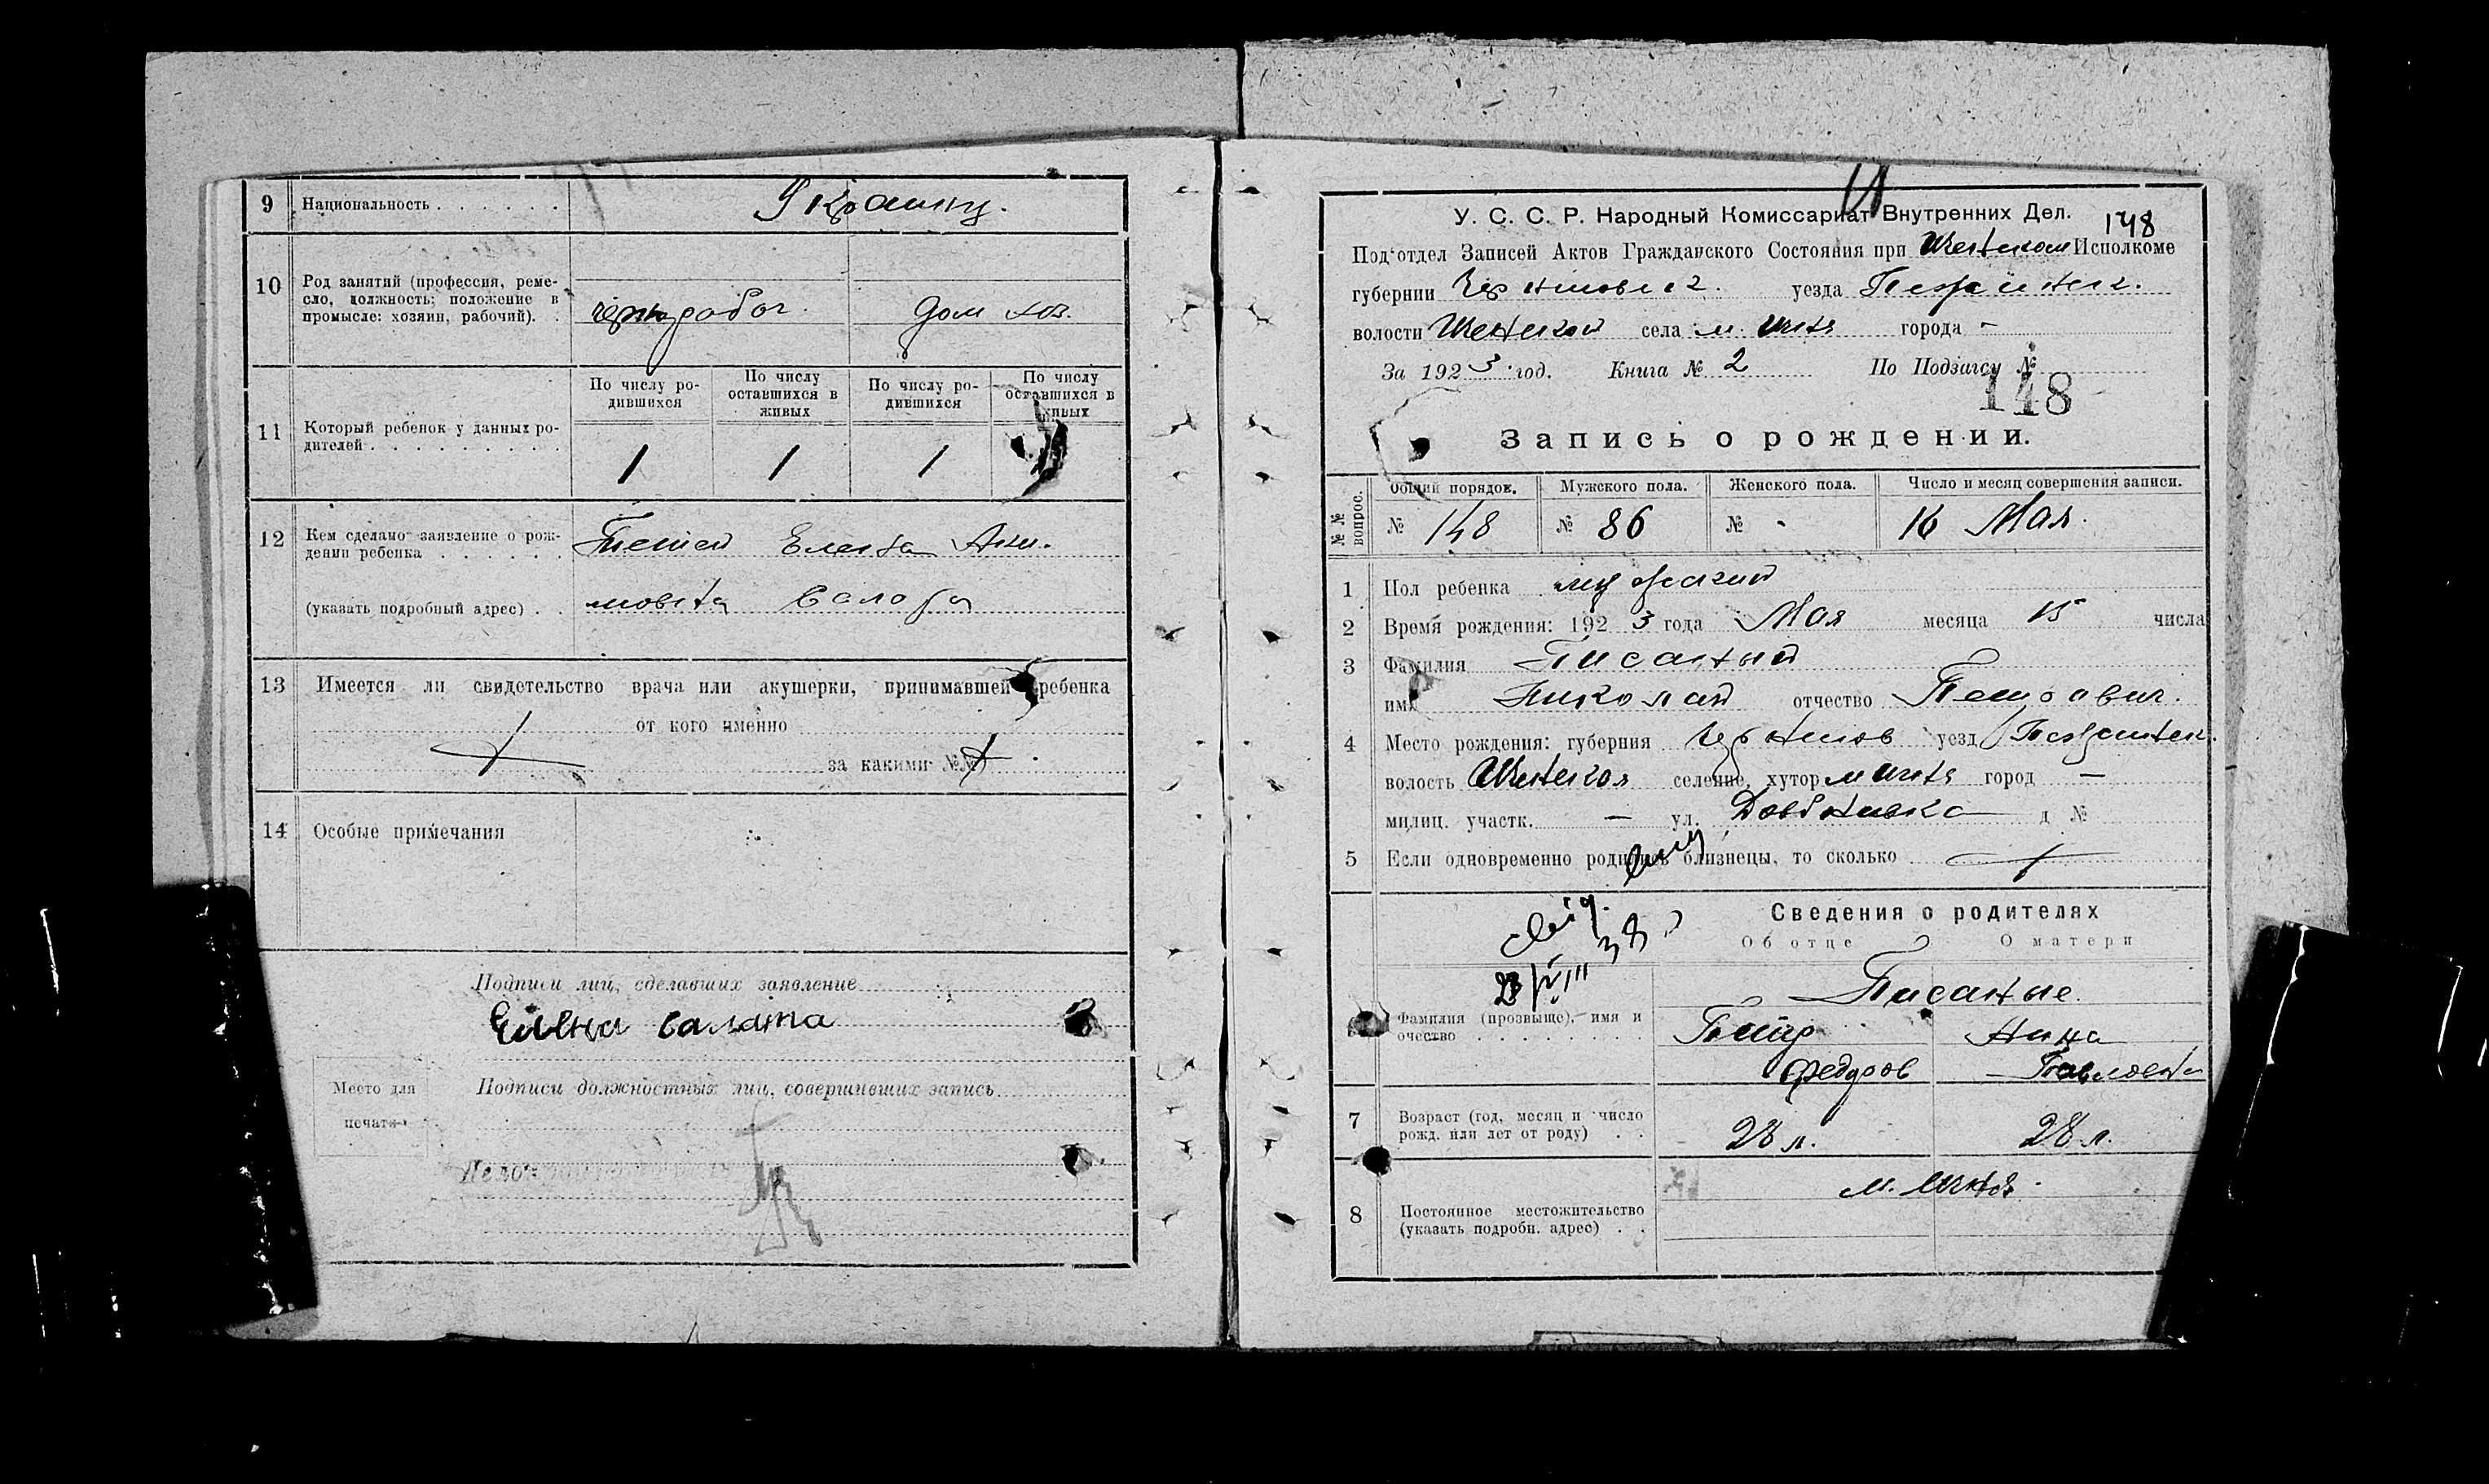 9 Национальность . . . . . . Украинц.
10 Род занятий (профессия, реме-
сло, должность; положение в
промысле: хозяин, рабочий). .
чернораboч. дом хоз.
11 Который ребенок у данных ро-
дителей . . . . . . . . .
По числу ро-
дившихся
По числу
оставшихся в
живых
По числу ро-
дившихся
По числу
оставшихся в
живых
1 1 1
12 Кем сделано заявление о рож-
дении ребенка . . . . . .
Елена
(указать подробный адрес) . .
13 Имеется ли свидетельство врача или акушерки, принимавшей ребенка
от кого именно
за какими №№
14 Особые примечания
Подписи лиц, сделавших заявление
Елена Салата
Место для
печати
Подписи должностных лиц, совершивших запись
У. С. С. Р. Народный Комиссариат Внутренних Дел.
148
Под‘отдел Записей Актов Гражданского Состояния при Исполкоме
губернии уезда
волости села м. города -
За 1923 год. Книга № 2 По Подзагсу №
148
Запись о рождении.
№ № вопрос.
Общий порядок. Мужского пола. Женского пола. Число и месяц совершения записи.
№ 148 № 86 № - 16 Мая.
1 Пол ребенка мужской
2 Время рождения: 1923 года Мая месяца 15 числа
3 Фамилия Писаный
имя Николай отчество Петрович.
4 Место рождения: губерния Чернигов уезд
волость селение, хутор город —
милиц. участк. — ул. д №
5 Если одновременно родились близнецы, то сколько
Сведения о родителях
Об отце О матери
38
Писаные.
Фамилия (прозвище), имя и
очество . . . . . . . .
Петр Нина
Федоров Павловна
7 Возраст (год, месяц и число
рожд. или лет от роду) . .
28 л. 28 л.
8 Постоянное местожительство
(указать подробн. адрес) . .